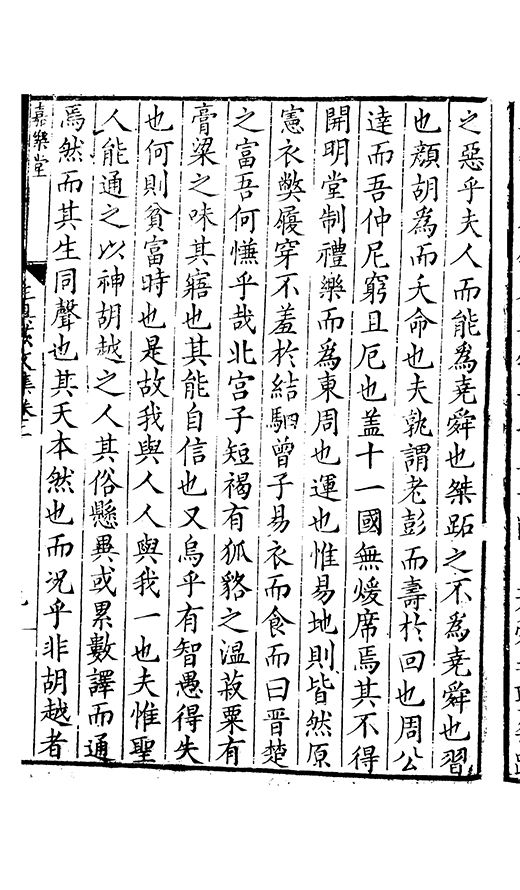 之惡乎夫人而能爲堯舜也桀跖之不爲堯舜也習
也顔胡爲而夭命也夫孰謂老彭而壽於回也周公
達而吾仲尼窮且厄也盖十一國無煖席焉其不得
開明堂制禮樂而爲東周也運也惟易地則皆然原
憲衣獘履穿不羞於結駟曾子易衣而食而曰晋楚
之富吾何慊乎哉北宫子短褐有狐貉之温菽粟有
膏粱之味其寤也其能自信也又烏乎有智愚得失
也何則貧富時也是故我與人人與我一也夫惟聖
人能通之以神胡越之人其俗懸異或累數譯而通
焉然而其生同聲也其天本然也而况乎非胡越者
嘉樂堂